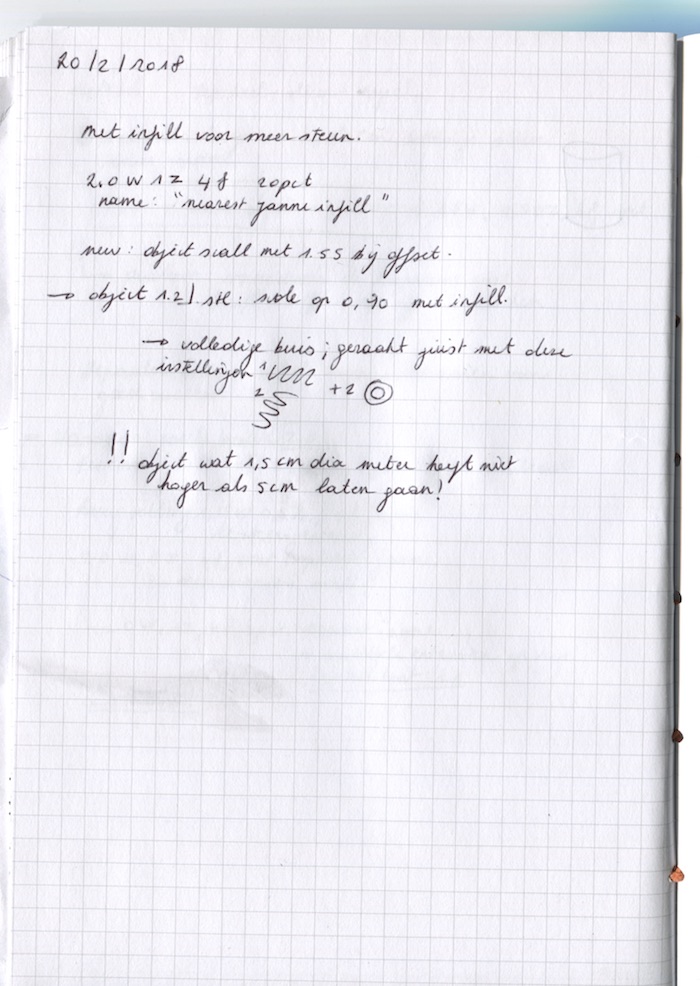 20/2/2018
met infill voor meer steun.
2.0 W 1 Z 4 f 20pct
name: "nearest janne infill"
new: object scall met 1.55 bij offset.
→ object 1.2 .stl: scale op 0,90 met infill.
→ volledige buis; geraakt juist met deze
instellingen 1
2 +2
!! object wat 1,5 cm dia meter heeft niet
hoger als 5cm laten gaan!